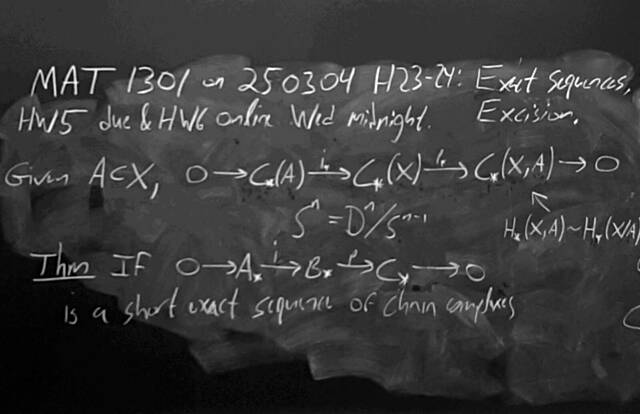 MAT 1301 on 250304 H23-24: Exact sequences,
HW5 due & HW6 online Wed midnight. Excision.
Given A⊂X, 0 → C_*(A) → C_*(X) → C_*(X,A) → 0
S^n = D^n/S^{n-1}
H_*(X,A) ~ H_*(X/A)
Thm If 0 → A_* → B_* → C_* → 0
is a short exact sequence of chain complexes